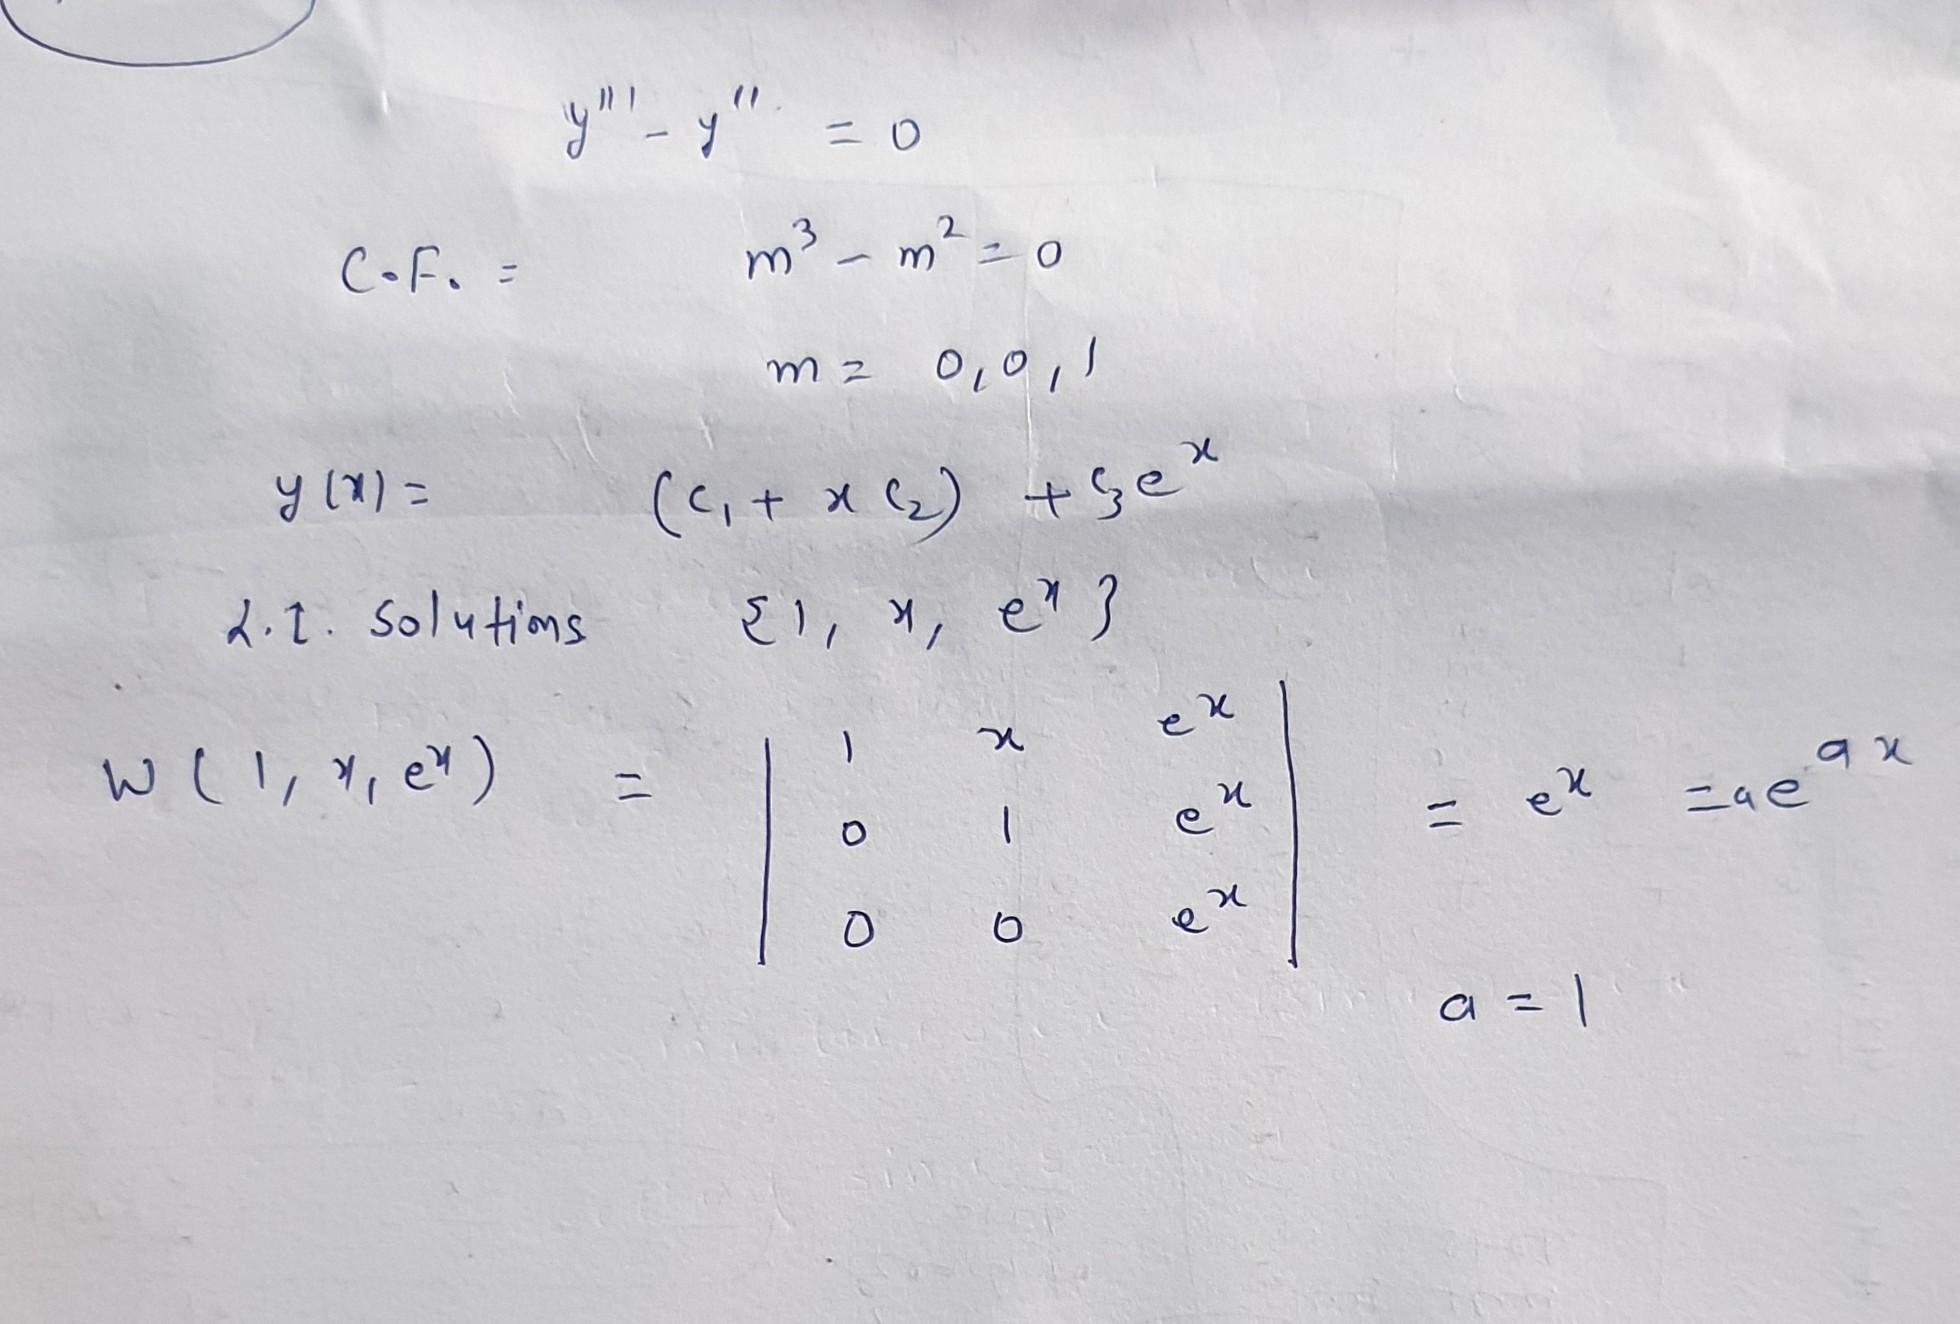 y''' - y'' = 0
C.F. = m³ - m² = 0
m = 0, 0, 1
y(x) = (c₁ + x c₂) + c₃eˣ
L.I. Solutions {1, x, eˣ}
W(1, x, eˣ) = | 1 x eˣ |
| 0 1 eˣ | = eˣ = aeᵃˣ
| 0 0 eˣ |
a = 1